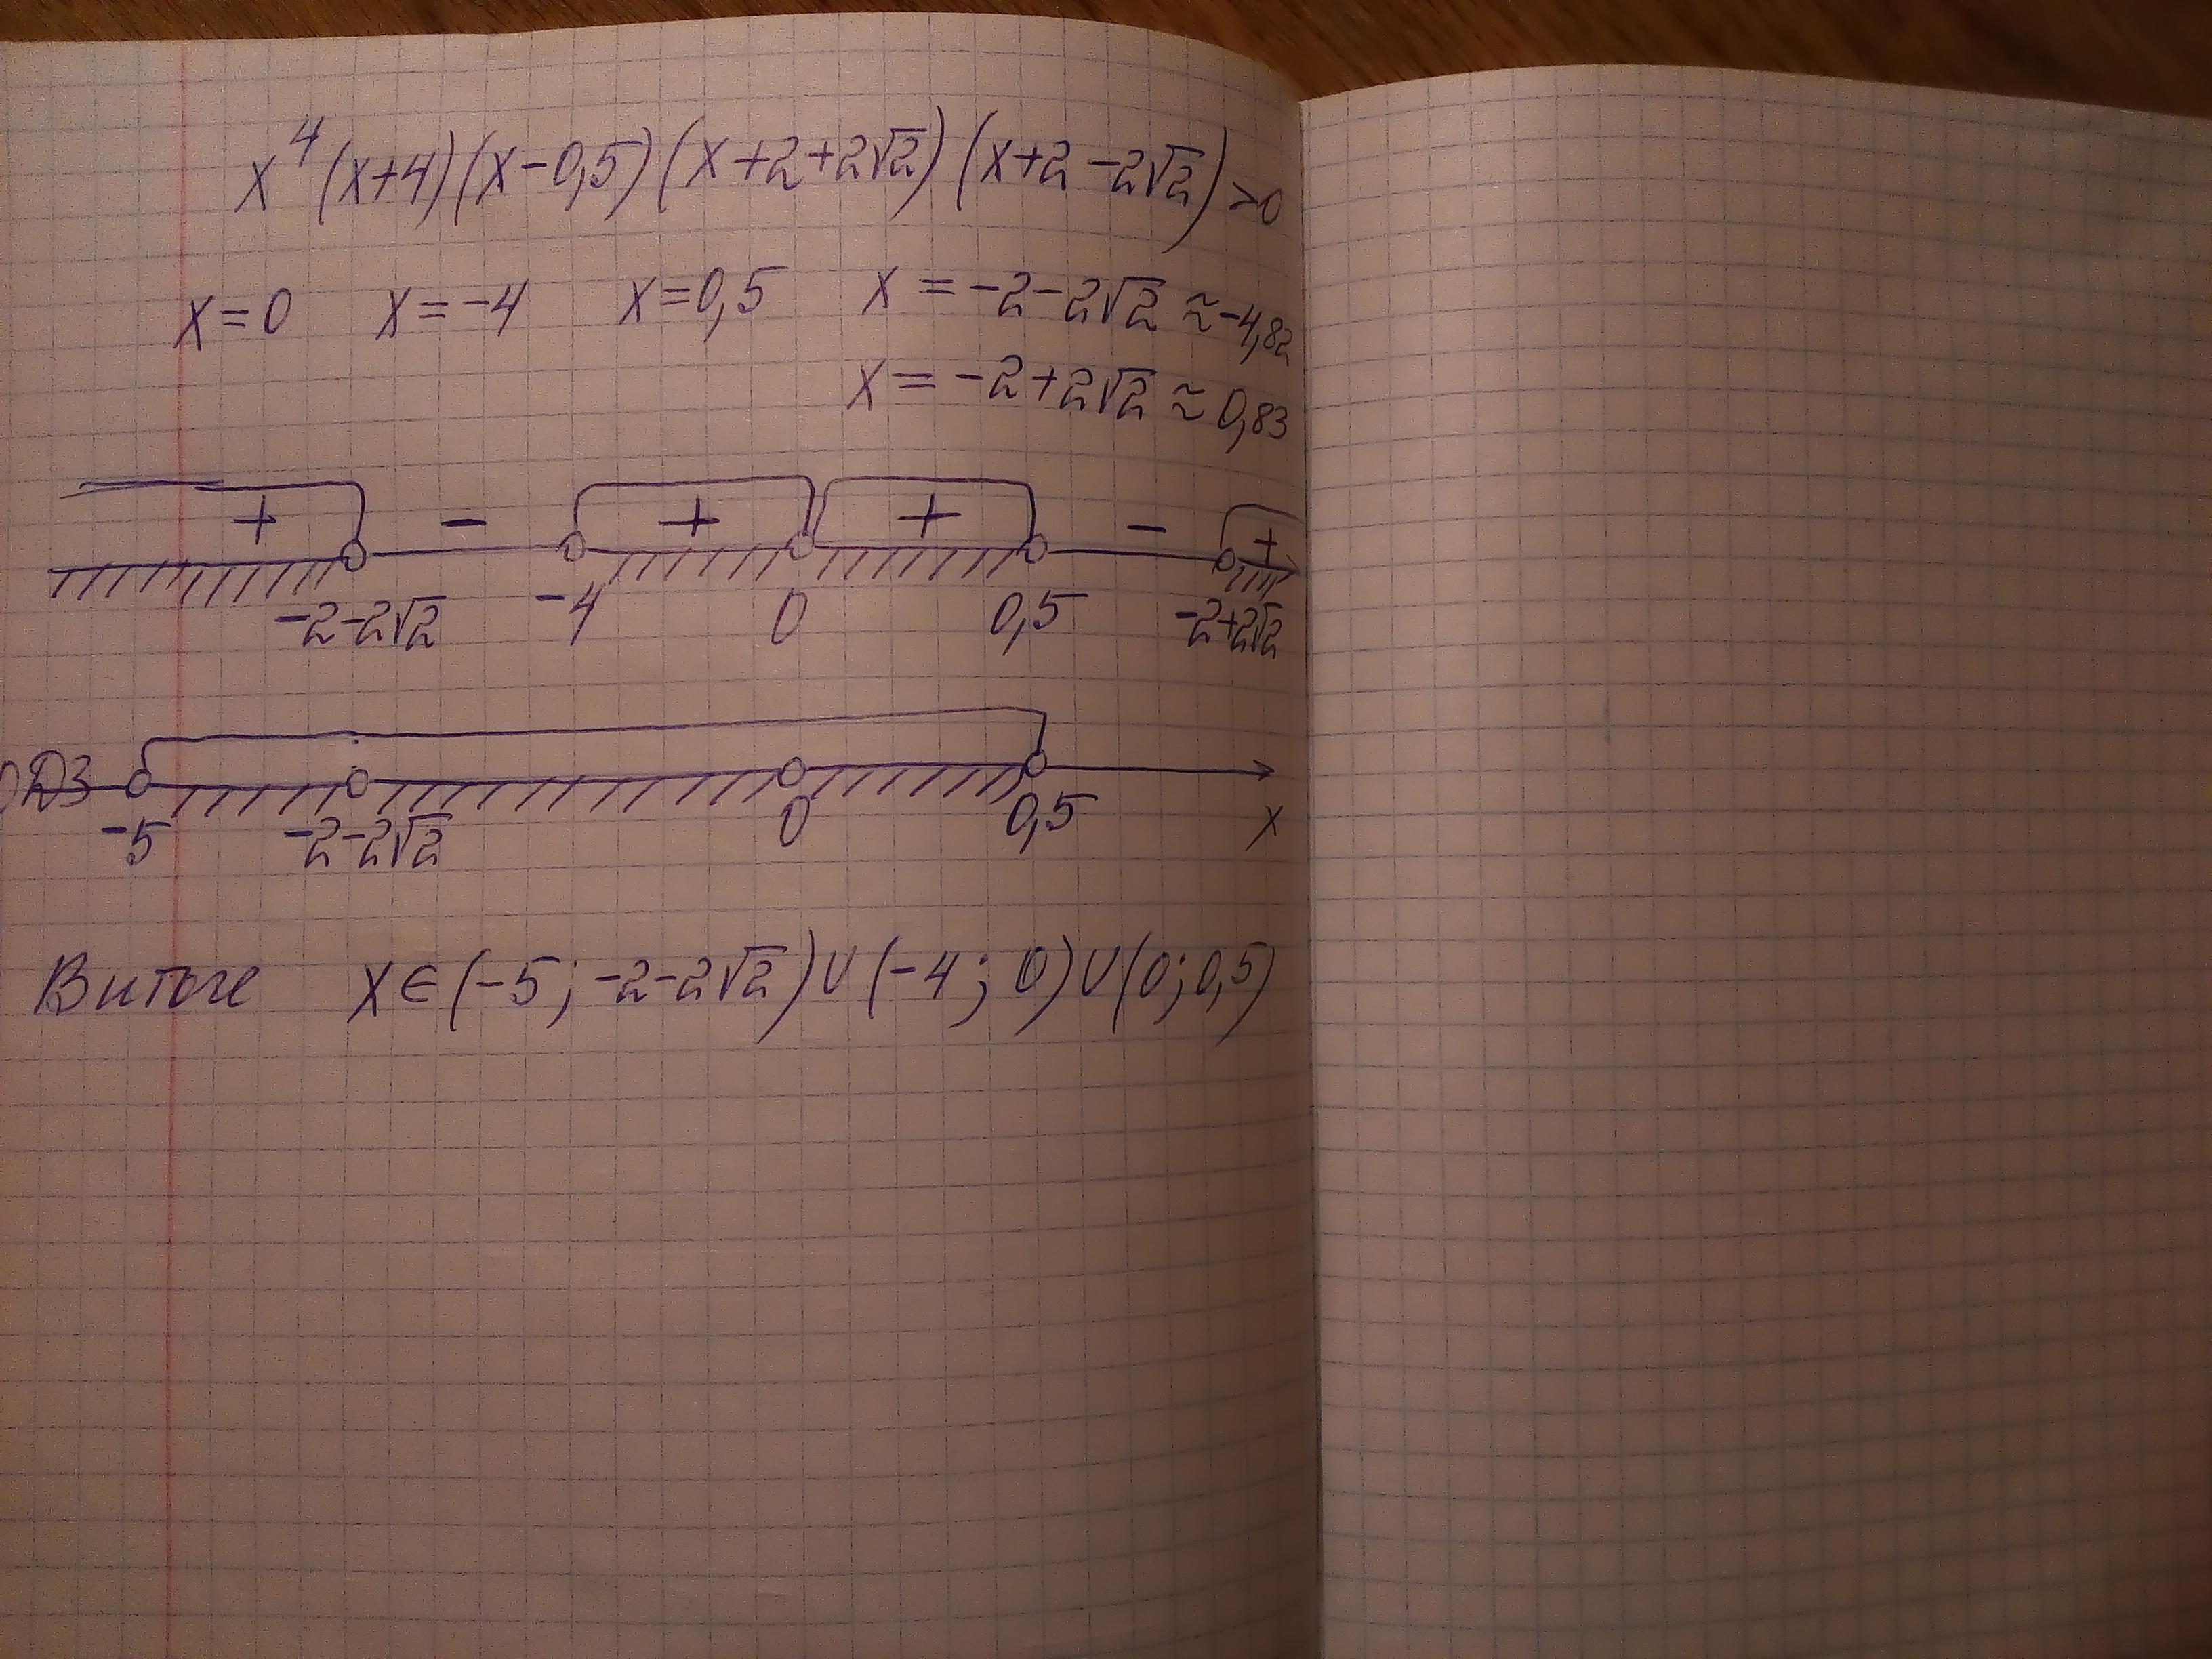 x⁴(x+4)(x-0,5)(x+2+2√2)(x+2-2√2)>0
x=0 x=-4 x=0,5 x=-2-2√2≈-4,82
x=-2+2√2≈0,83
+ - + + - +
-2-2√2 -4 0 0,5 -2+2√2
ОДЗ
-5 -2-2√2 0 0,5 x
В итоге x∈(-5;-2-2√2)∪(-4;0)∪(0;0,5)